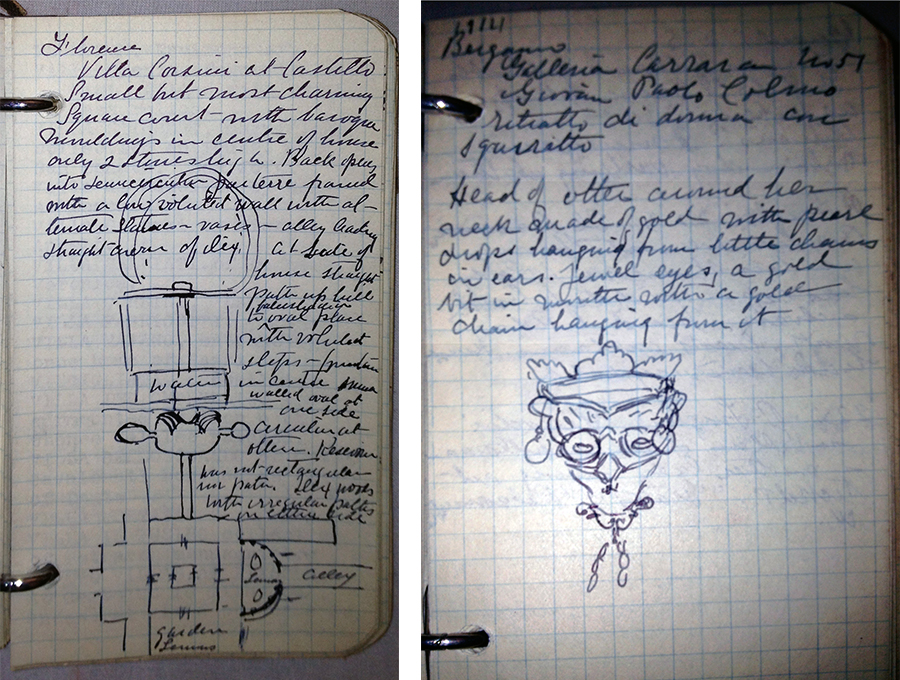 Florence
Villa Corsini at Castello
Small but most charming
Square court with baroque
mouldings in centre of house
only 2 stories high. Back opens
into semicircular parterre framed
with a low voluted wall with al-
ternate statues - vases - alley leading
straight avenue of ilex. at side of
house straight
path up hill
balustrade
to oval place
with voluted
steps - fountain
in centre
walled oval at
one side
circular at
other. Reservoir
was not rectangular
nor path. Ilex woods
with irregular paths
on either side
water
Lemons
alley
garden
Lemons
1914
Bergamo
Galleria Carrara No 51
Giovan Paolo Colmo
ritratto di donna con
sguratto
Head of otter around her
neck made of gold with pearl
drops hanging from little chains
in ears. Jewel eyes, a gold
bit in mouth with a gold
chain hanging from it